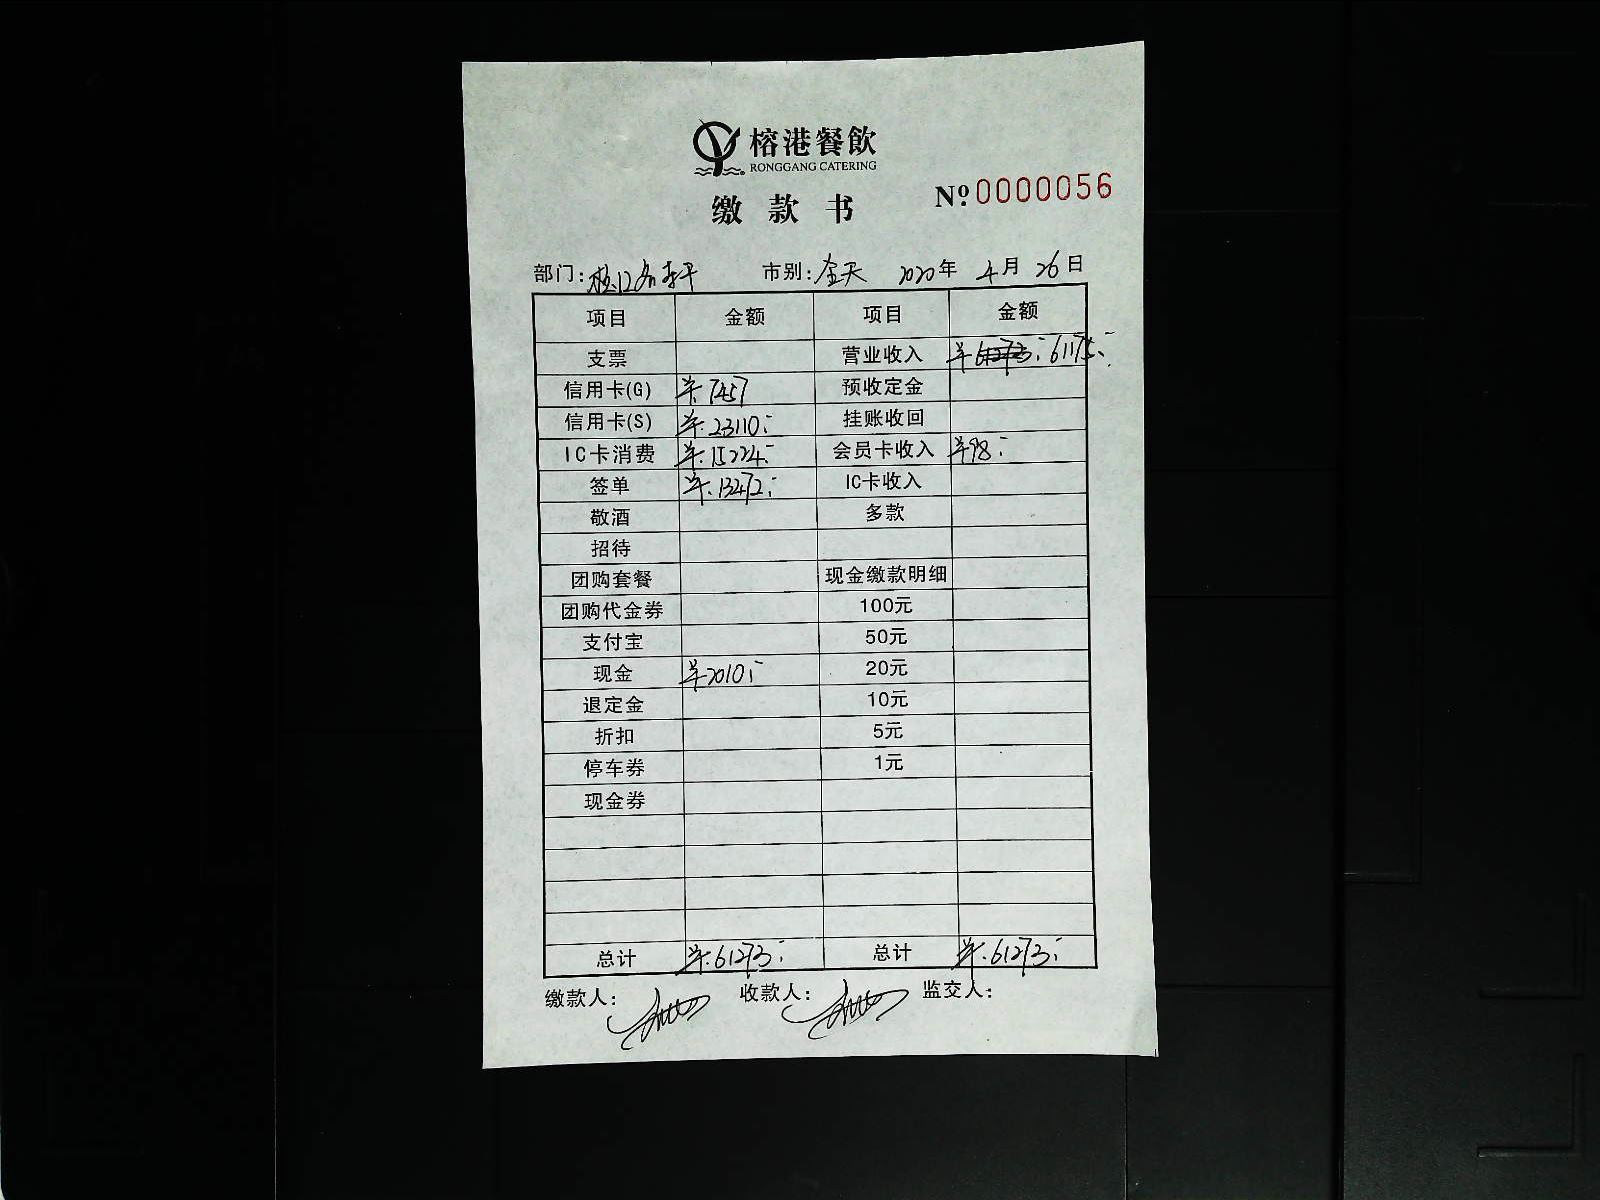 榕港餐飲
RONGGANG CATERING
缴款书 Nº 0000056
部门: 市别: 全天 2020年 4月 26日
项目 金额 项目 金额
支票 营业收入 ¥61273.- 61175.-
信用卡(G) ¥7457 预收定金
信用卡(S) ¥.23110.- 挂账收回
IC卡消费 ¥.15224.- 会员卡收入 ¥98.-
签单 ¥.13472.- IC卡收入
敬酒 多款
招待
团购套餐 现金缴款明细
团购代金券 100元
支付宝 50元
现金 ¥2010.- 20元
退定金 10元
折扣 5元
停车券 1元
现金券
总计 ¥.61273.- 总计 ¥.61273.-
缴款人: 收款人: 监交人: